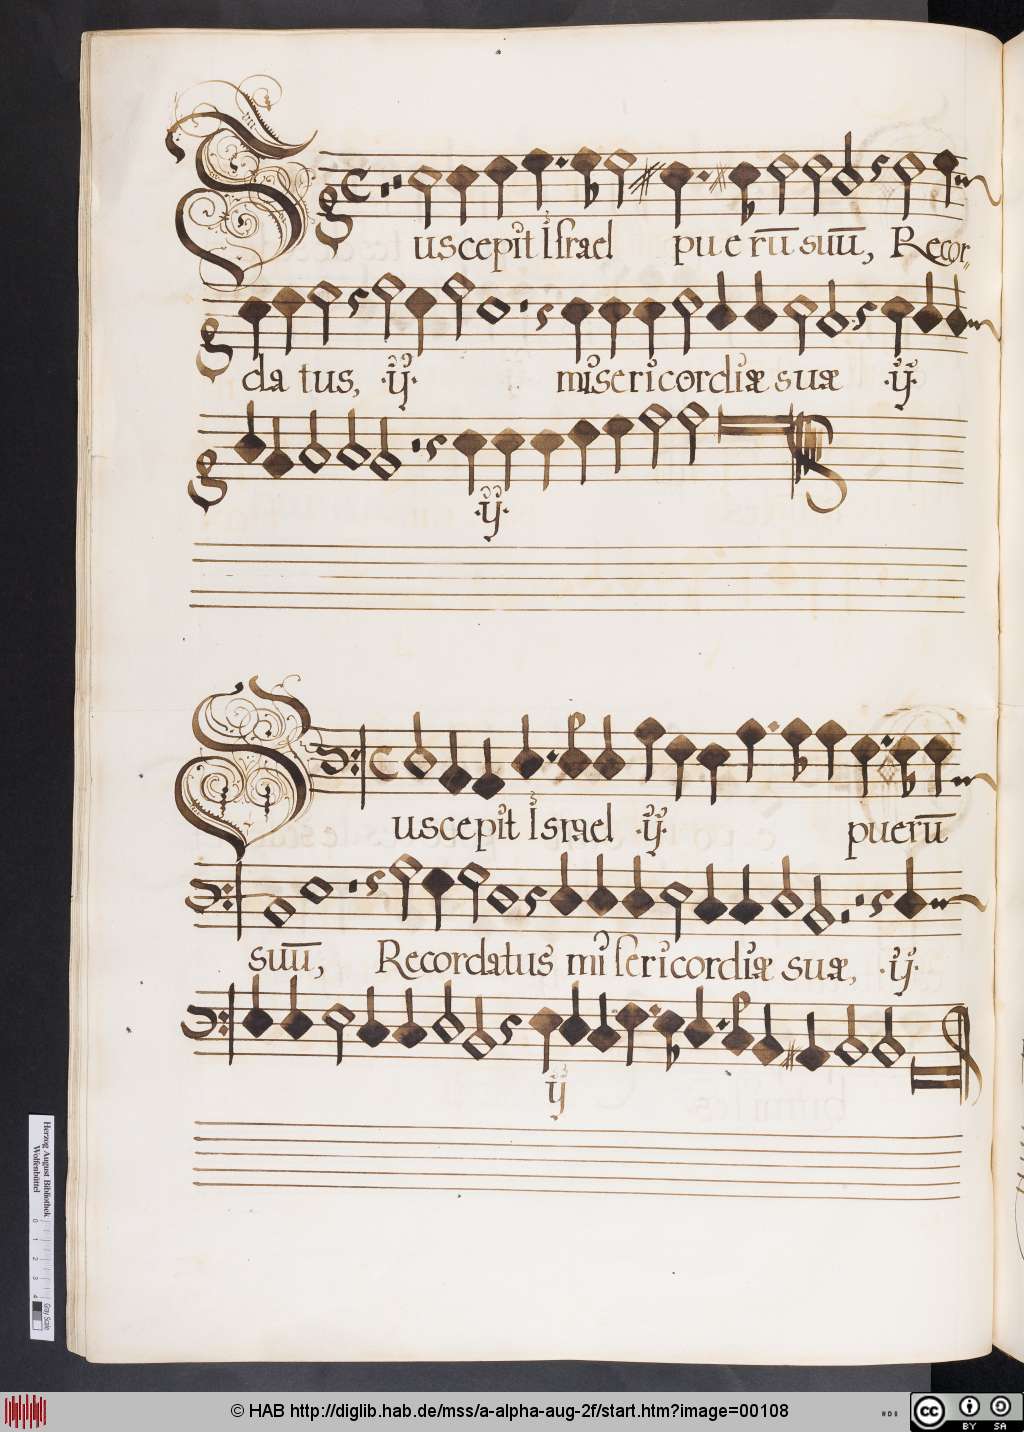 Suscepit Israel puerū suū, Recor=
datus, ·ÿ· misericordiæ suæ ·ÿ·
·ÿ·
Suscepit Israel ·ÿ· puerū
suū, Recordatus misericordiæ suæ, ·ÿ·
ÿ
Herzog August Bibliothek
Wolfenbüttel
0 1 2 3 4
Gray Scale
© HAB http://diglib.hab.de/mss/a-alpha-aug-2f/start.htm?image=00108
cc BY SA